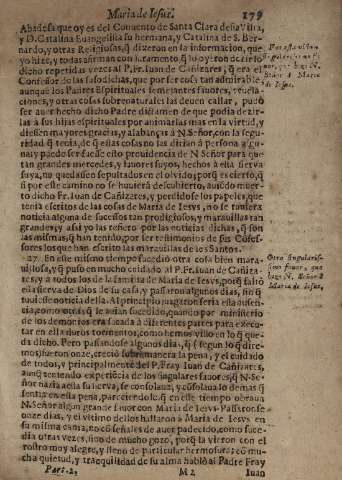 Maria de Iesus. 179
Abadesa que oy es del Convento de Santa Clara desta Villa,
y D. Catalina Euangelista su hermana, y Catalina de S. Ber-
nardo, y otras Religiosas, q̃ dizeron en la informacion, que
yo hize, y todas afirman con juramento, q̃ lo oyeron dezir
dicho repetidas vezes al P. Fr. Iuan de Cañizares, q̃ era el
Confessor de las sasodichas, que por ser cosa tan admirable,
aunque los Padres Espirituales semejantes fauores, reuela-
ciones, y otras cosas sobrenaturales las deuen callar, pudo
auer hecho dicho Padre dictamen de que podia dezir-
las à sus hijas espirituales por animarlas mas en la virtud, y
diessen mayores gracias, y alabanças à N. Señor, con la segu-
ridad q̃ tenia, de q̃ ellas cosas no las dirian à persona algu-
na; y puede ser fuesse esto prouidencia de N. Señor para que
tan grandes mercedes, y fauores suyos, hechos à esta sierva
suya, no quedassen sepultados en el olvido; porq̃ es cierto, q̃
si por este camino no se huuiera descubierto, auiẽdo muer-
to dicho Fr. Iuan de Cañizares, y perdidose los papeles que
tenia escritos de las cosas de Maria de Iesvs, no se tuuiera
noticia alguna de sucessos tan prodigiosos, y marauillas tan
grandes; y assi yo las refiero por las noticias dichas, q̃ son
las mismas, q̃ han tenido, por los testimonios de sus Cõfes-
sores los que han escrito las marauillas de los Santos.
27. En este mismo tiempo sucediò otra cosa bien mara-
uillosa, y q̃ puso en mucho cuidado al P. Fr. Iuan de Cañiza-
res, y à todos los de la familia de Maria de Iesvs, porq̃ saliò
esta sierva de Dios de su casa y passaron algunos dias, sin q̃
tuuiesse noticia della. Al principio juzgaron seria esta ausen-
cia, como otras, q̃ le auian sucedido, quando por ministerio
de los demonios era sacada à diferentes partes para execu-
tar en ella duros tormentos, como hemos visto en lo q̃ que-
da dicho. Pero passandose algunos dias, q̃ (segun lo q̃ dire-
mos) fueron onze, creciò sobremanera la pena, y el cuidado
de todos, y principalmente del P. Fray Iuan de Cañizares,
aunq̃ teniendo experiencia de los singulares fauores, q̃ N. Se-
ñor hazia à esta su sierva, se consolaua, y cõsolaua lo demas q̃
sentia en esta pena, pareciendole, q̃ en este tiempo obraua
N. Señor algun grande fauor con Maria de Iesvs. Passaronse
onze dias, y el vltimo dellos hallaron à Maria de Iesvs en
su misma cama, no cõ señales de auer padecido, como suce-
dia otras vezes, sino de mucho gozo, porq̃ la vieron con el
rostro muy alegre, y lleno de particular hermosura; y cõ mu-
cha quietud, y tranquilidad de su alma hablò al Padre Fray
Part. 2. M 2 Iuan
Otro singularis-
simo fauor, que
haze N. Señor à
Maria de Iesus.